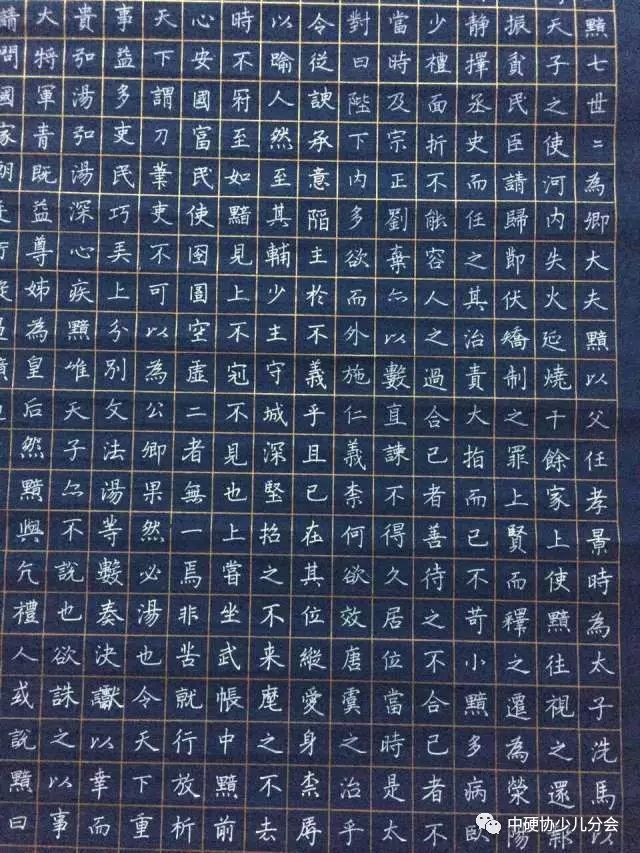 黯七世二為卿大夫黯以父任孝景時為太子洗馬以
天子之使河內失火延燒千餘家上使黯往視之還
振貧民臣請歸節伏矯制之罪上賢而釋之遷為滎陽
静擇丞史而任之其治責大指而已不苛小黯多病臥
少禮面折不能容人之過合己者善待之不合己者不
當時及宗正劉棄亦以數直諫不得久居位當時是太
對曰陛下內多欲而外施仁義柰何欲效唐虞之治乎
令從諛承意陷主於不義乎且已在其位縱愛身柰辱
以踰人然至其輔少主守城深堅招之不来麾之不去
時不冠至如黯見上不冠不見也上嘗坐武帳中黯前
心安國富民使囹圄空虛二者無一焉非苦就行放析
天下謂刀筆吏不可以為公卿果然必湯也令天下重
事益多吏民巧弄上分別文法湯等數奏決讞以幸而
貴弘湯弘湯深心疾黯唯天子亦不說也欲誅之以事
大將軍青既益尊姊為皇后然黯與亢禮人或說黯曰
請問國家朝
中硬协少儿分会